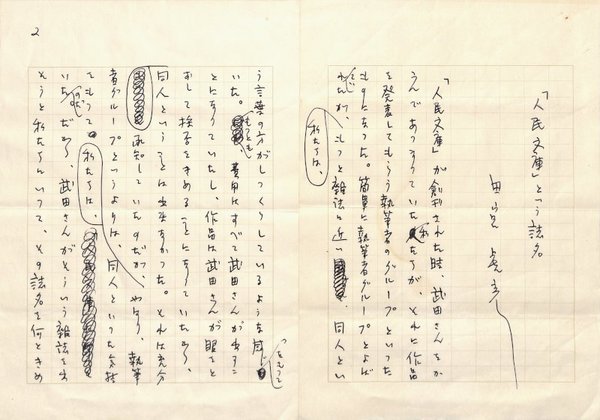 「人民文庫」という誌名
田宮虎彦
「人民文庫」が創刊された時、武田さんをか
こんであつまっていた私たちが、それに作品
を発表してもらう執筆者のグループといった
ものになった。簡単に執筆者グループとよば
れたが、もっと雑誌に近い 同人とい
私たちは、
2
う言葉の方がしっくりしているような感じをもって
いた。もっとも、費用はすべて武田さんが出すこ
とになっていたし、作品は武田さんが眼をと
おして採否をきめることになっていたから、
同人ということは出来なかった。それは充分
承知していたのだが、やはり、執筆
者グループというよりは、同人といった気持
をもって 私たちは、
いたのだ。だから、武田さんがそういう雑誌を出
そうと私たちにいって、その誌名を何ときめ